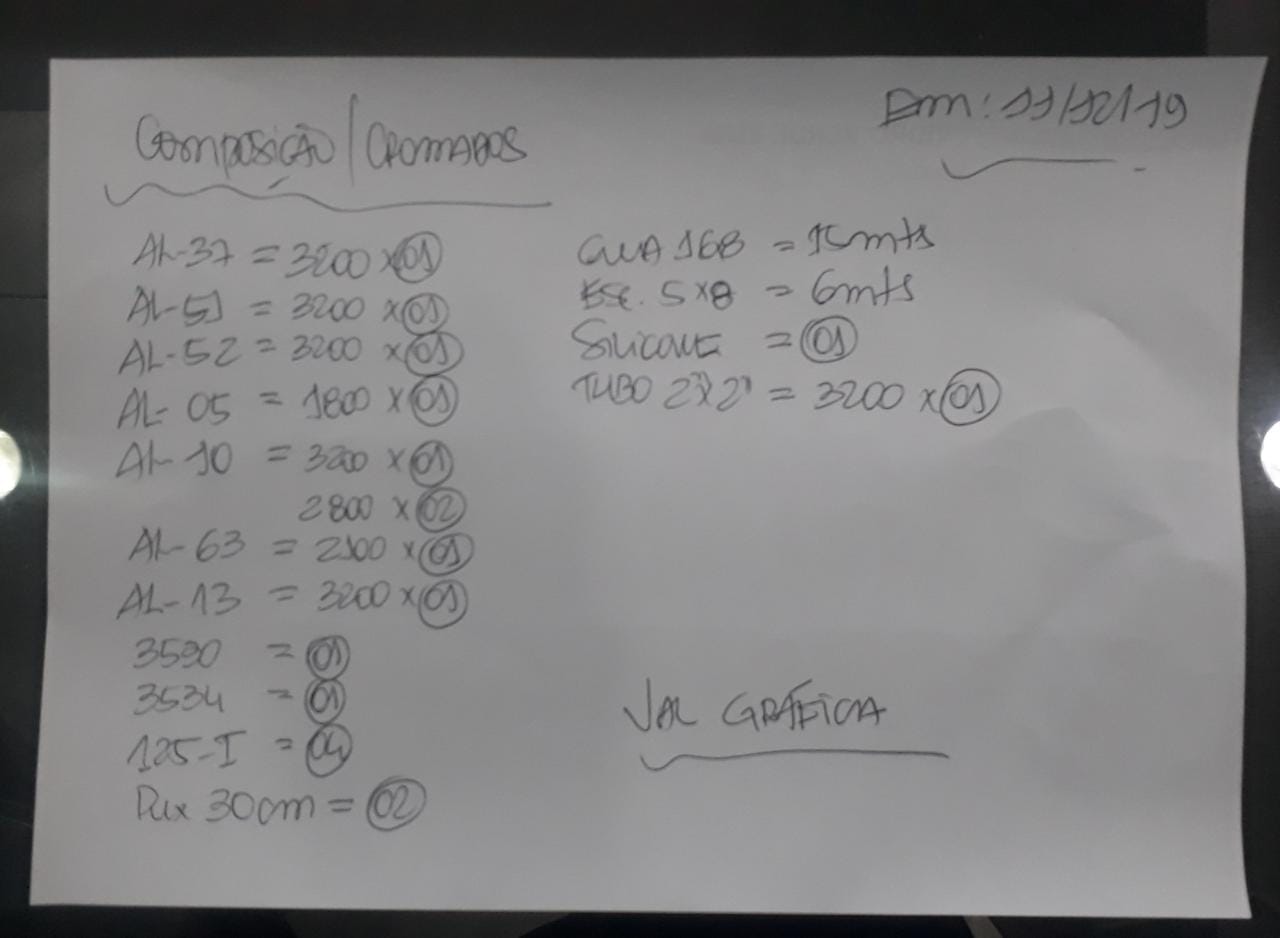 COMPOSIÇÃO / CROMADOS
Em: 11/12/19
AL-37 = 3200 x 01
AL-51 = 3200 x 01
AL-52 = 3200 x 01
AL-05 = 1800 x 01
AL-10 = 3200 x 01
2800 x 02
AL-63 = 2100 x 01
AL-13 = 3200 x 01
3590 = 01
3534 = 01
125-I = 04
Pux 30cm = 02
GUA 168 = 15mts
ESC. 5x8 = 6mts
Silicone = 01
TUBO 2"x2" = 3200 x 01
VAL GRÁFICA